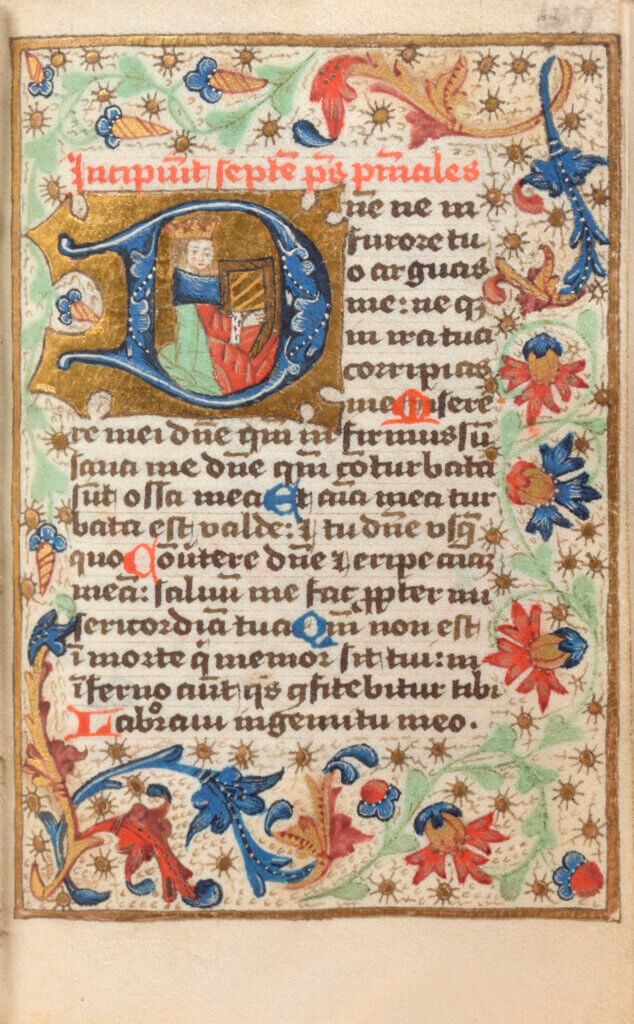 Incipiūt septē p̄s pn̄iales
Dn̄e ne in
furore tu
o arguas
me: ne qꝫ
in ira tua
corripias
me Misere
re mei dn̄e qm̄ infirmus sū
sana me dn̄e qm̄ cōturbata
sūt ossa mea Et aīa mea tur
bata est valde: ⁊ tu dn̄e vsq̄
quo Cōūtere dn̄e ⁊ eripe aīaꝫ
meā: saluū me fac ꝓpter mi
sericordiā tuā Qm̄ non est
ī morte q̄ memor sit tui: in
īferno aūt q̄s ꝯfitebitur tibi
Laboraui in gemitu meo.